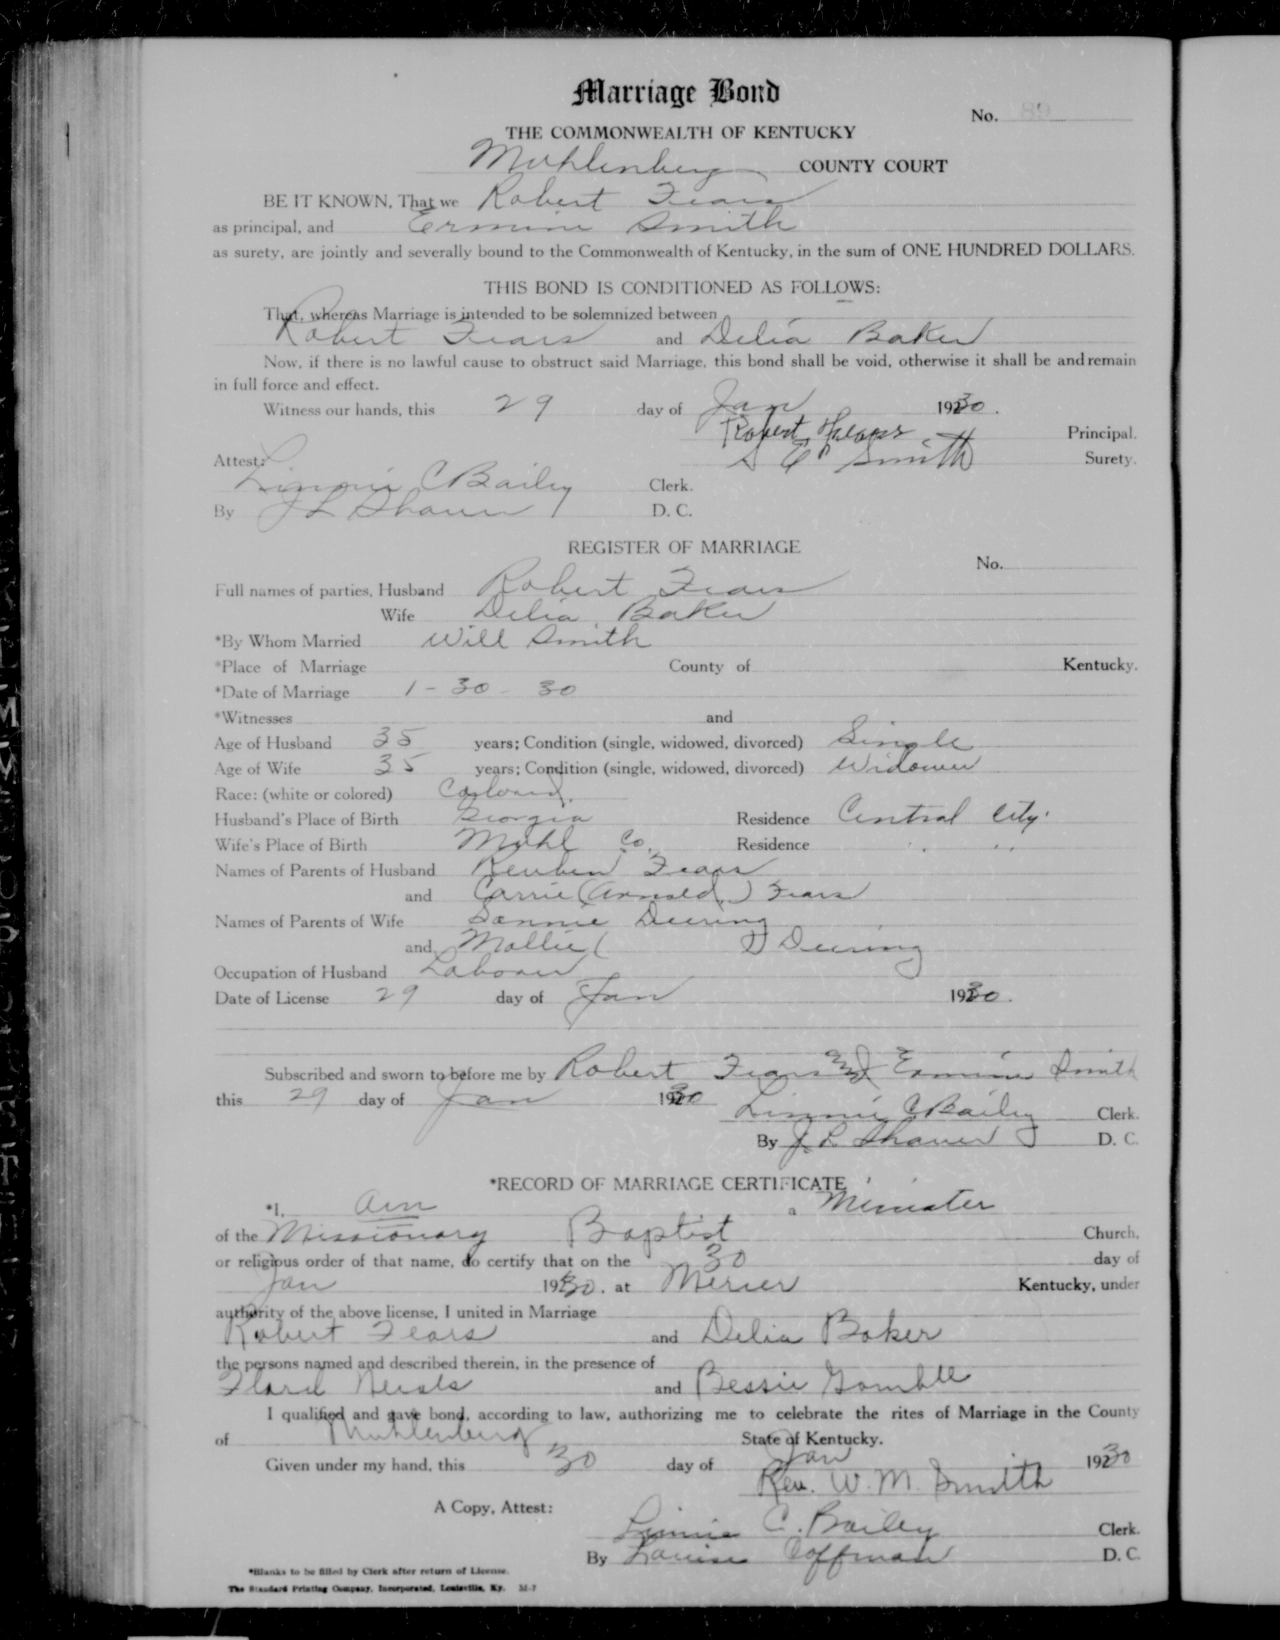 Marriage Bond
No. 89
THE COMMONWEALTH OF KENTUCKY
Muhlenberg COUNTY COURT
BE IT KNOWN, That we Robert Fears
as principal, and Ermine Smith
as surety, are jointly and severally bound to the Commonwealth of Kentucky, in the sum of ONE HUNDRED DOLLARS.
THIS BOND IS CONDITIONED AS FOLLOWS:
That, whereas Marriage is intended to be solemnized between
Robert Fears and Delia Baker
Now, if there is no lawful cause to obstruct said Marriage, this bond shall be void, otherwise it shall be and remain
in full force and effect.
Witness our hands, this 29 day of Jan 1930.
Robert Fears Principal.
Attest: S E Smith Surety.
Linnie C Bailey Clerk.
By J L Shaver D. C.
REGISTER OF MARRIAGE
No.
Full names of parties, Husband Robert Fears
Wife Delia Baker
*By Whom Married Will Smith
*Place of Marriage County of Kentucky.
*Date of Marriage 1-30-30
*Witnesses and
Age of Husband 35 years; Condition (single, widowed, divorced) Single
Age of Wife 35 years; Condition (single, widowed, divorced) Widower
Race: (white or colored) Colored.
Husband's Place of Birth Georgia Residence Central City.
Wife's Place of Birth Muhl Co. Residence " "
Names of Parents of Husband Reuben Fears
and Carrie (Arnold) Fears
Names of Parents of Wife Sammie Deering
and Mollie ( ) Deering
Occupation of Husband Laborer
Date of License 29 day of Jan 1930.
Subscribed and sworn to before me by Robert Fears and Ermine Smith
this 29 day of Jan 1930 Linnie C Bailey Clerk.
By J. L Shaver D. C.
*RECORD OF MARRIAGE CERTIFICATE
*I, Am a Minister
of the Missionary Baptist Church,
or religious order of that name, do certify that on the 30 day of
Jan 1930. at Mercer Kentucky, under
authority of the above license, I united in Marriage
Robert Fears and Delia Baker
the persons named and described therein, in the presence of
and Bessie Gamble
I qualified and gave bond, according to law, authorizing me to celebrate the rites of Marriage in the County
of Muhlenberg State of Kentucky.
Given under my hand, this 30 day of Jan 1930
Rev. W. M. Smith
A Copy, Attest:
Linnie C. Bailey Clerk.
By Louise Coffman D. C.
*Blanks to be filled by Clerk after return of License.
The Standard Printing Company, Incorporated, Louisville, Ky. M-7